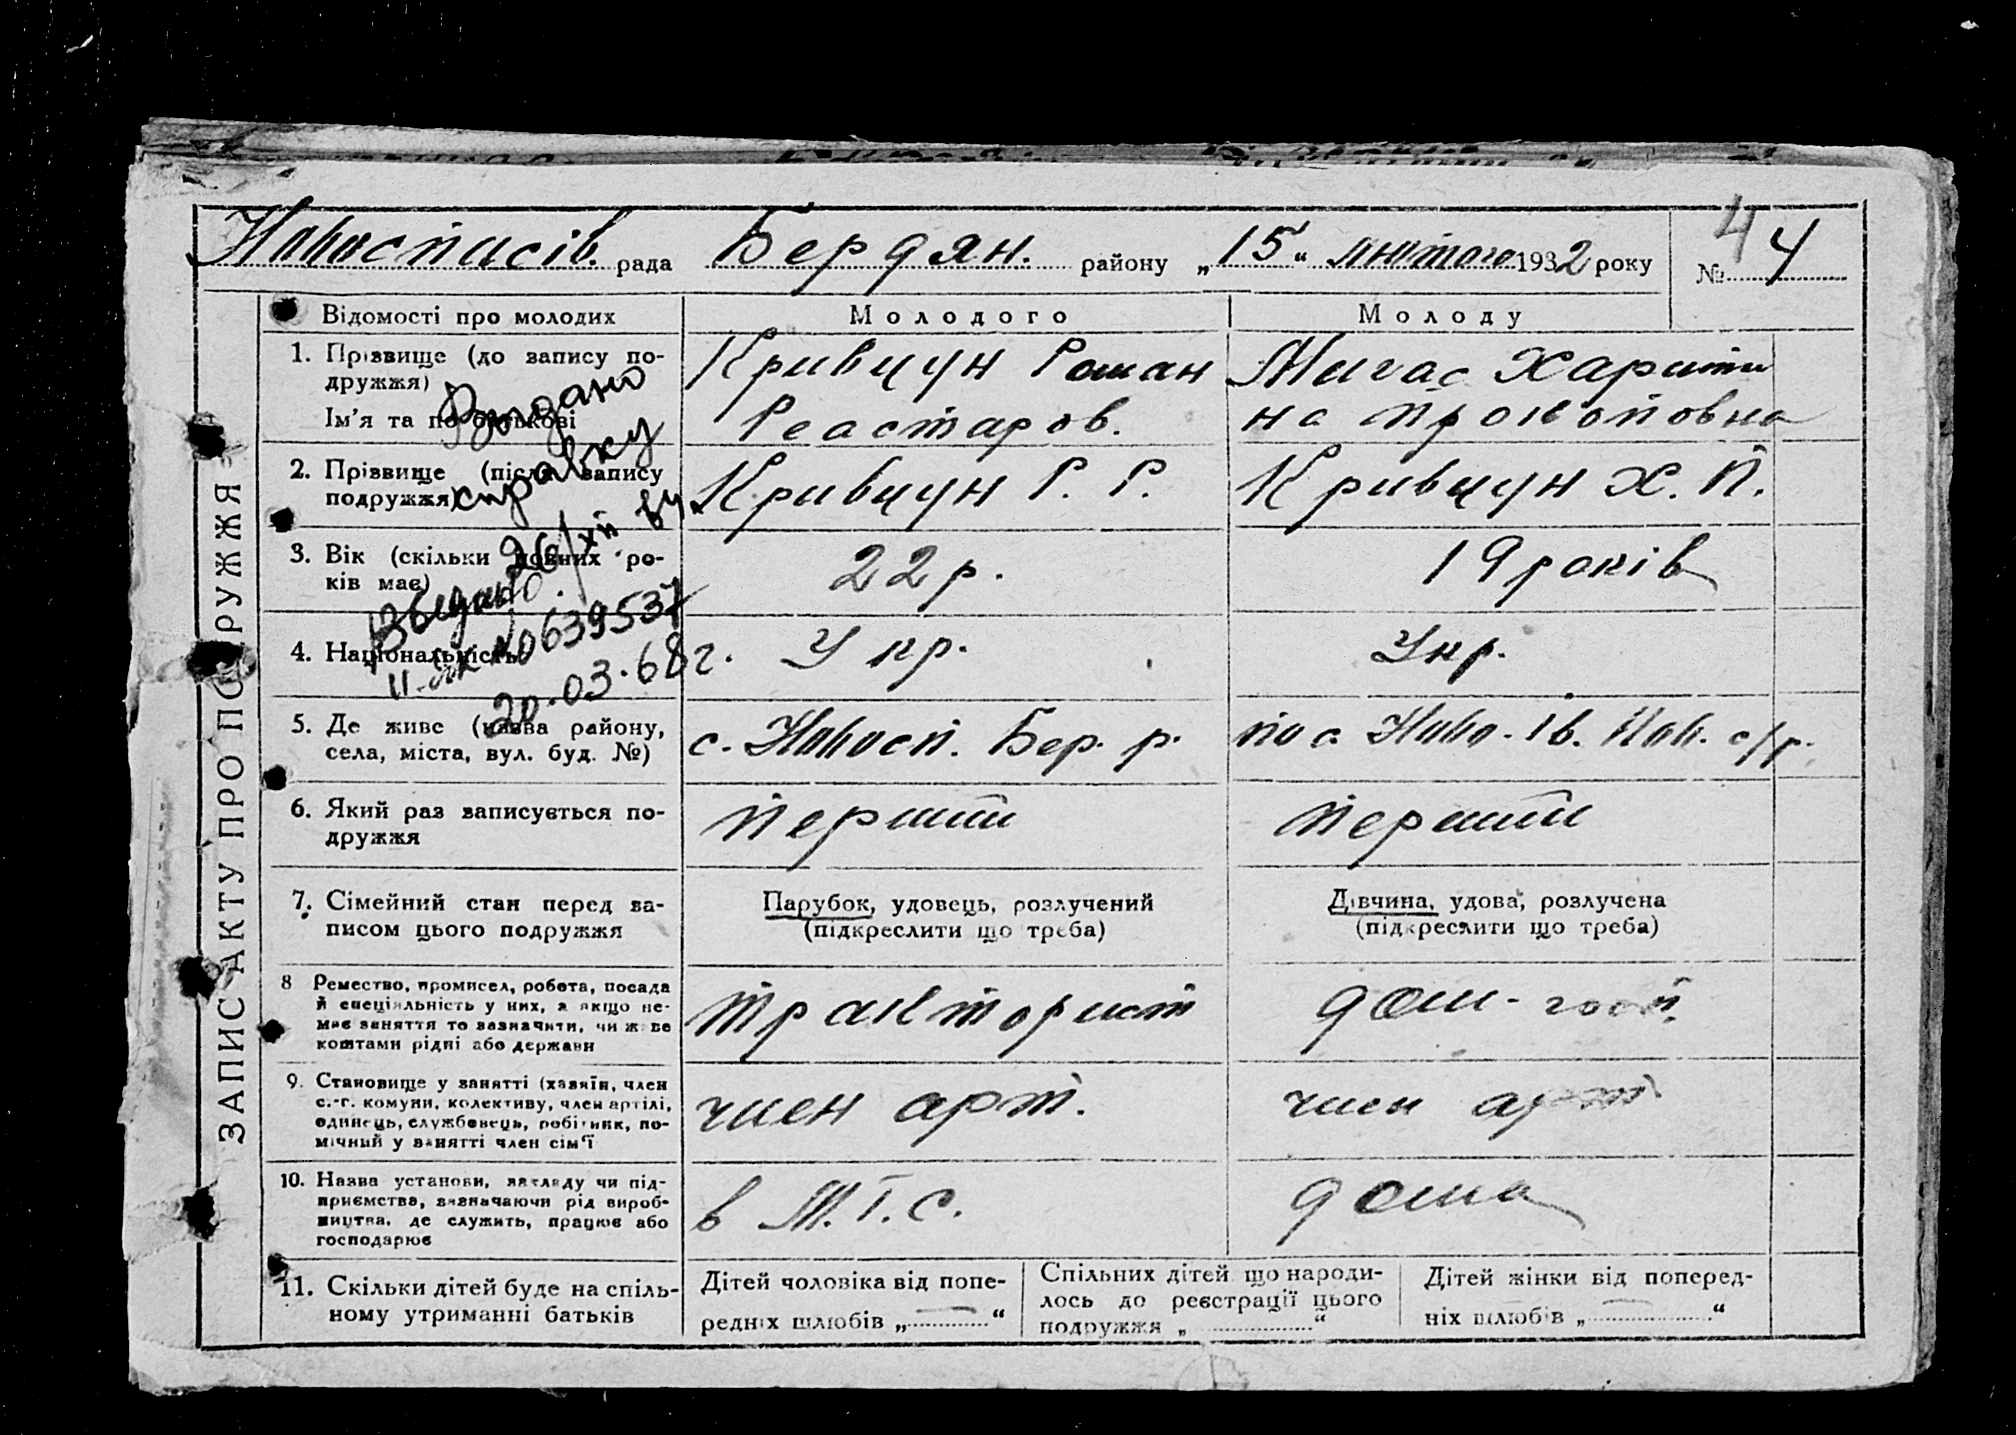 Новоспасів. рада Бердян. району „15“ лютого 1932 року
4
№ 4
ЗАПИС АКТУ ПРО ПОДРУЖЖЯ
Відомості про молодих
Молодого
Молоду
1. Прізвище (до запису по-
дружжя)
Ім'я та по батькові
Кривцун Роман
Реастаров.
Мигас Харити
на Прокоповна
2. Прізвище (після запису
подружжя)
Кривцун Р. Р.
Кривцун Х. П.
3. Вік (скільки повних ро-
ків має)
22 р.
19 років
4. Національність
Укр.
Укр.
5. Де живе (назва району,
села, міста, вул. буд. №)
с. Новосп. Бер. р.
пос. Ново-Ів. Нов. с/р.
6. Який раз записується по-
дружжя
Перший
Перший
7. Сімейний стан перед за-
писом цього подружжя
Парубок, удовець, розлучений
(підкреслити що треба)
Дівчина, удова, розлучена
(підкреслити що треба)
8 Ремество, промисел, робота, посада
й спеціяльність у них, а якщо не-
має заняття то зазначити, чи живе
коштами рідні або держави
тракторист
дом-госп.
9. Становище у занятті (хазяїн, член
с.-г. комуни, колективу, член артілі,
одинець, службовець, робітник, по-
мічний у занятті член сім'ї
член арт.
член арт.
10. Назва установи, закладу чи під-
приємства, зазначаючи рід вироб-
ництва, де служить, працює або
господарює
в М.Т.С.
дома
11. Скільки дітей буде на спіль-
ному утриманні батьків
Дітей чоловіка від попе-
редніх шлюбів „ — “
Спільних дітей що народи-
лось до реєстрації цього
подружжя „ “
Дітей жінки від поперед-
ніх шлюбів „ — “
Выдано
справку
26/XII
Выдано
№ 0639537
20.03.68 г.